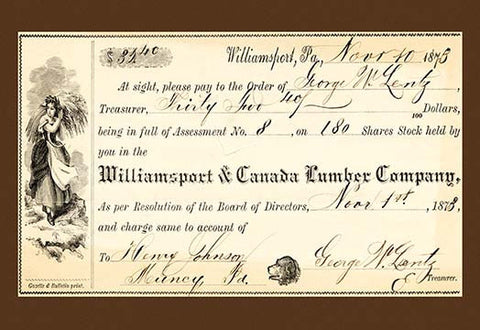 $32.40
Williamsport, Pa, Novr 10 1873
At sight, please pay to the Order of George W. Lentz,
Treasurer, Thirty Two 40/100 Dollars,
being in full of Assessment No. 8, on 180 Shares Stock held by
you in the
Williamsport & Canada Lumber Company,
As per Resolution of the Board of Directors, Novr 1st, 1873,
and charge same to account of
To Henry Johnson George W. Lentz
Muncy, Pa. Treasurer.
Gazette & Bulletin print.